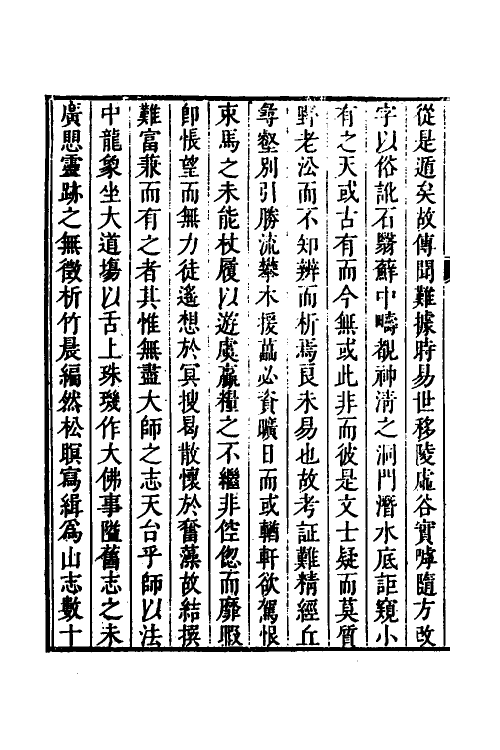 從是遁矣故傳聞難據時易世移陵虛谷實嘑隨方改
字以俗訛石翳蘚中疇覩神淸之洞門潛水底詎窺小
有之天或古有而今無或此非而彼是文士疑而莫質
野老訟而不知辨而析焉良未易也故考証難精經丘
尋壑別引勝流攀木援藟必資曠日而或輶軒欲駕恨
束馬之未能杖履以遊虞羸糧之不繼非倥偬而靡暇
卽悵望而無力徒遙想於冥搜曷散懷於奮藻故結撰
難富兼而有之者其惟無盡大師之志天台乎師以法
中龍象坐大道塲以舌上珠璣作大佛事隘舊志之未
廣愳靈跡之無徵析竹晨編然松暝寫緝爲山志數十